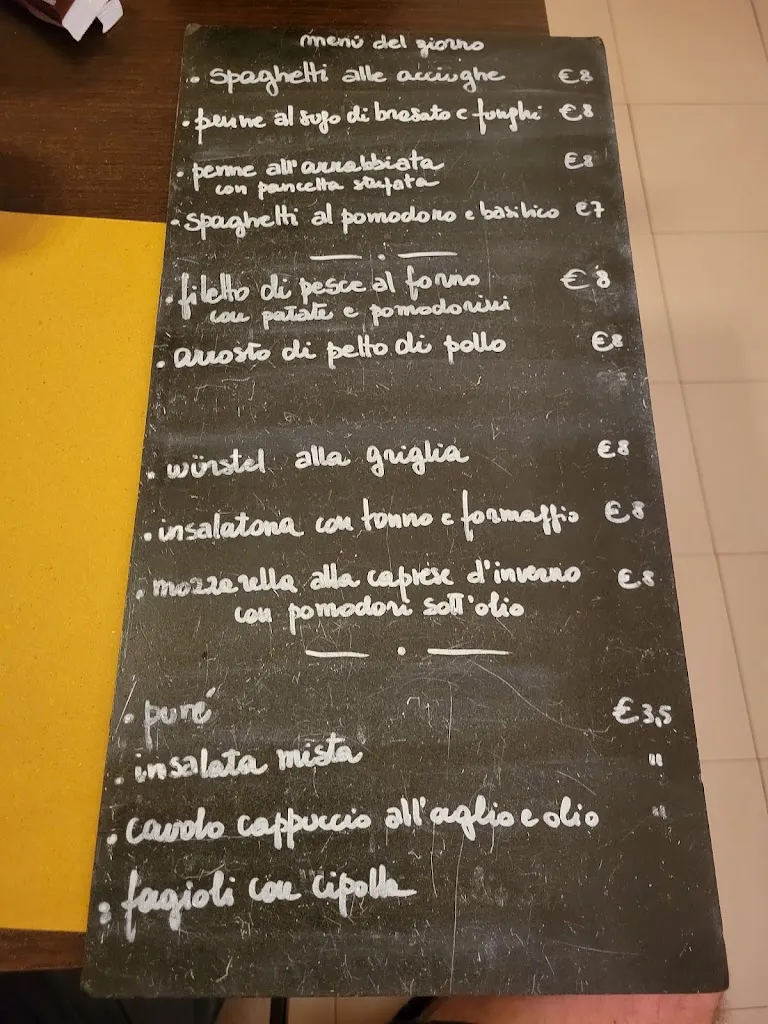 menù del giorno
• spaghetti alle acciughe €8
• penne al sugo di brasato e funghi €8
• penne all'arrabbiata €8
con pancetta stufata
• spaghetti al pomodoro e basilico €7
• filetto di pesce al forno €8
con patate e pomodorini
• arrosto di petto di pollo €8
• würstel alla griglia €8
• insalatona con tonno e formaggio €8
• mozzarella alla caprese d'inverno €8
con pomodori sott'olio
• puré €3,5
• insalata mista "
• cavolo cappuccio all'aglio e olio "
• fagioli con cipolla